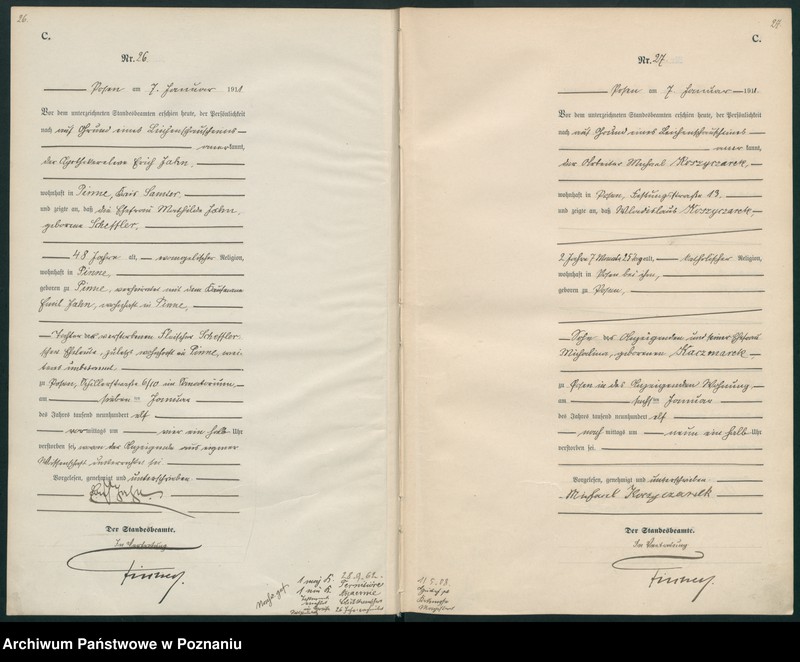 26.
C.
Nr. 26.
Posen am 7. Januar 1911
Vor dem unterzeichneten Standesbeamten erschien heute, der Persönlichkeit
nach auf Grund eines Leichenschauscheines
anerkannt,
der Apothekereleve Erich Jahn,
wohnhaft in Pinne, Kreis Samter,
und zeigte an, daß die Ehefrau Mathilde Jahn,
geborene Scheffler,
48 Jahre alt, evangelischer Religion,
wohnhaft in Pinne,
geboren zu Pinne, verheiratet mit dem Kaufmann
Emil Jahn, wohnhaft in Pinne,
Tochter der verstorbenen Fleischer Scheffler-
schen Eheleute, zuletzt wohnhaft in Pinne, wei-
teres unbekannt
zu Posen, Schillerstraße 6/10 im Sanatorium
am sieben ten Januar
des Jahres tausend neunhundert elf
vormittags um vier ein halb Uhr
verstorben sei, wovon der Anzeigende aus eigener
Wissenschaft unterrichtet sei
Vorgelesen, genehmigt und unterschrieben
Erich Jahn.
Der Standesbeamte.
In Vertretung
27
C.
Nr. 27
Posen am 7 Januar 1911.
Vor dem unterzeichneten Standesbeamten erschien heute, der Persönlichkeit
nach auf Grund eines Leichenschauscheines
anerkannt,
der Arbeiter Michael Koszyczarek,
wohnhaft in Posen, Festungsstraße 13,
und zeigte an, daß Wladislaus Koszyczarek,
2 Jahre 7 Monate 25 Tage alt, katholischer Religion,
wohnhaft in Posen bei ihm,
geboren zu Posen,
Sohn des Anzeigenden und seiner Ehefrau
Michalina, geborenen Kaczmarek
zu Posen in des Anzeigenden Wohnung
am Januar
des Jahres tausend neunhundert elf
nachmittags um neun ein halb Uhr
verstorben sei.
Vorgelesen, genehmigt und unterschrieben
Michael Koszyczarek
Der Standesbeamte.
In Vertretung
Archiwum Państwowe w Poznaniu